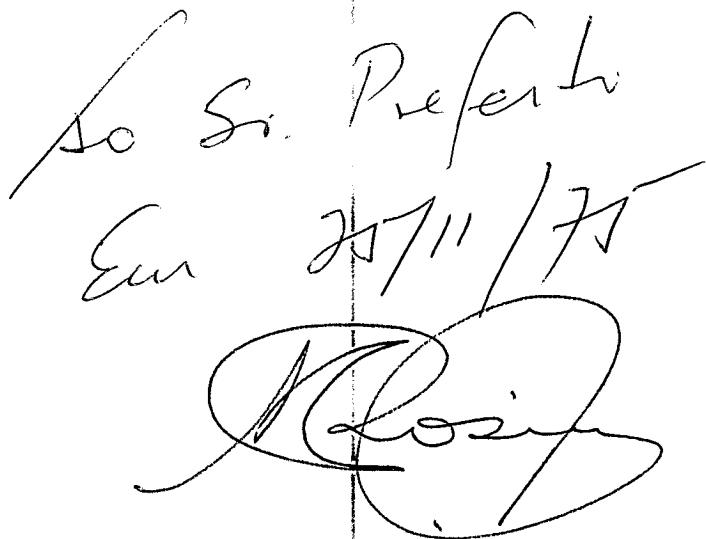 Ao Sr. Prefeito
Em 25/11/75